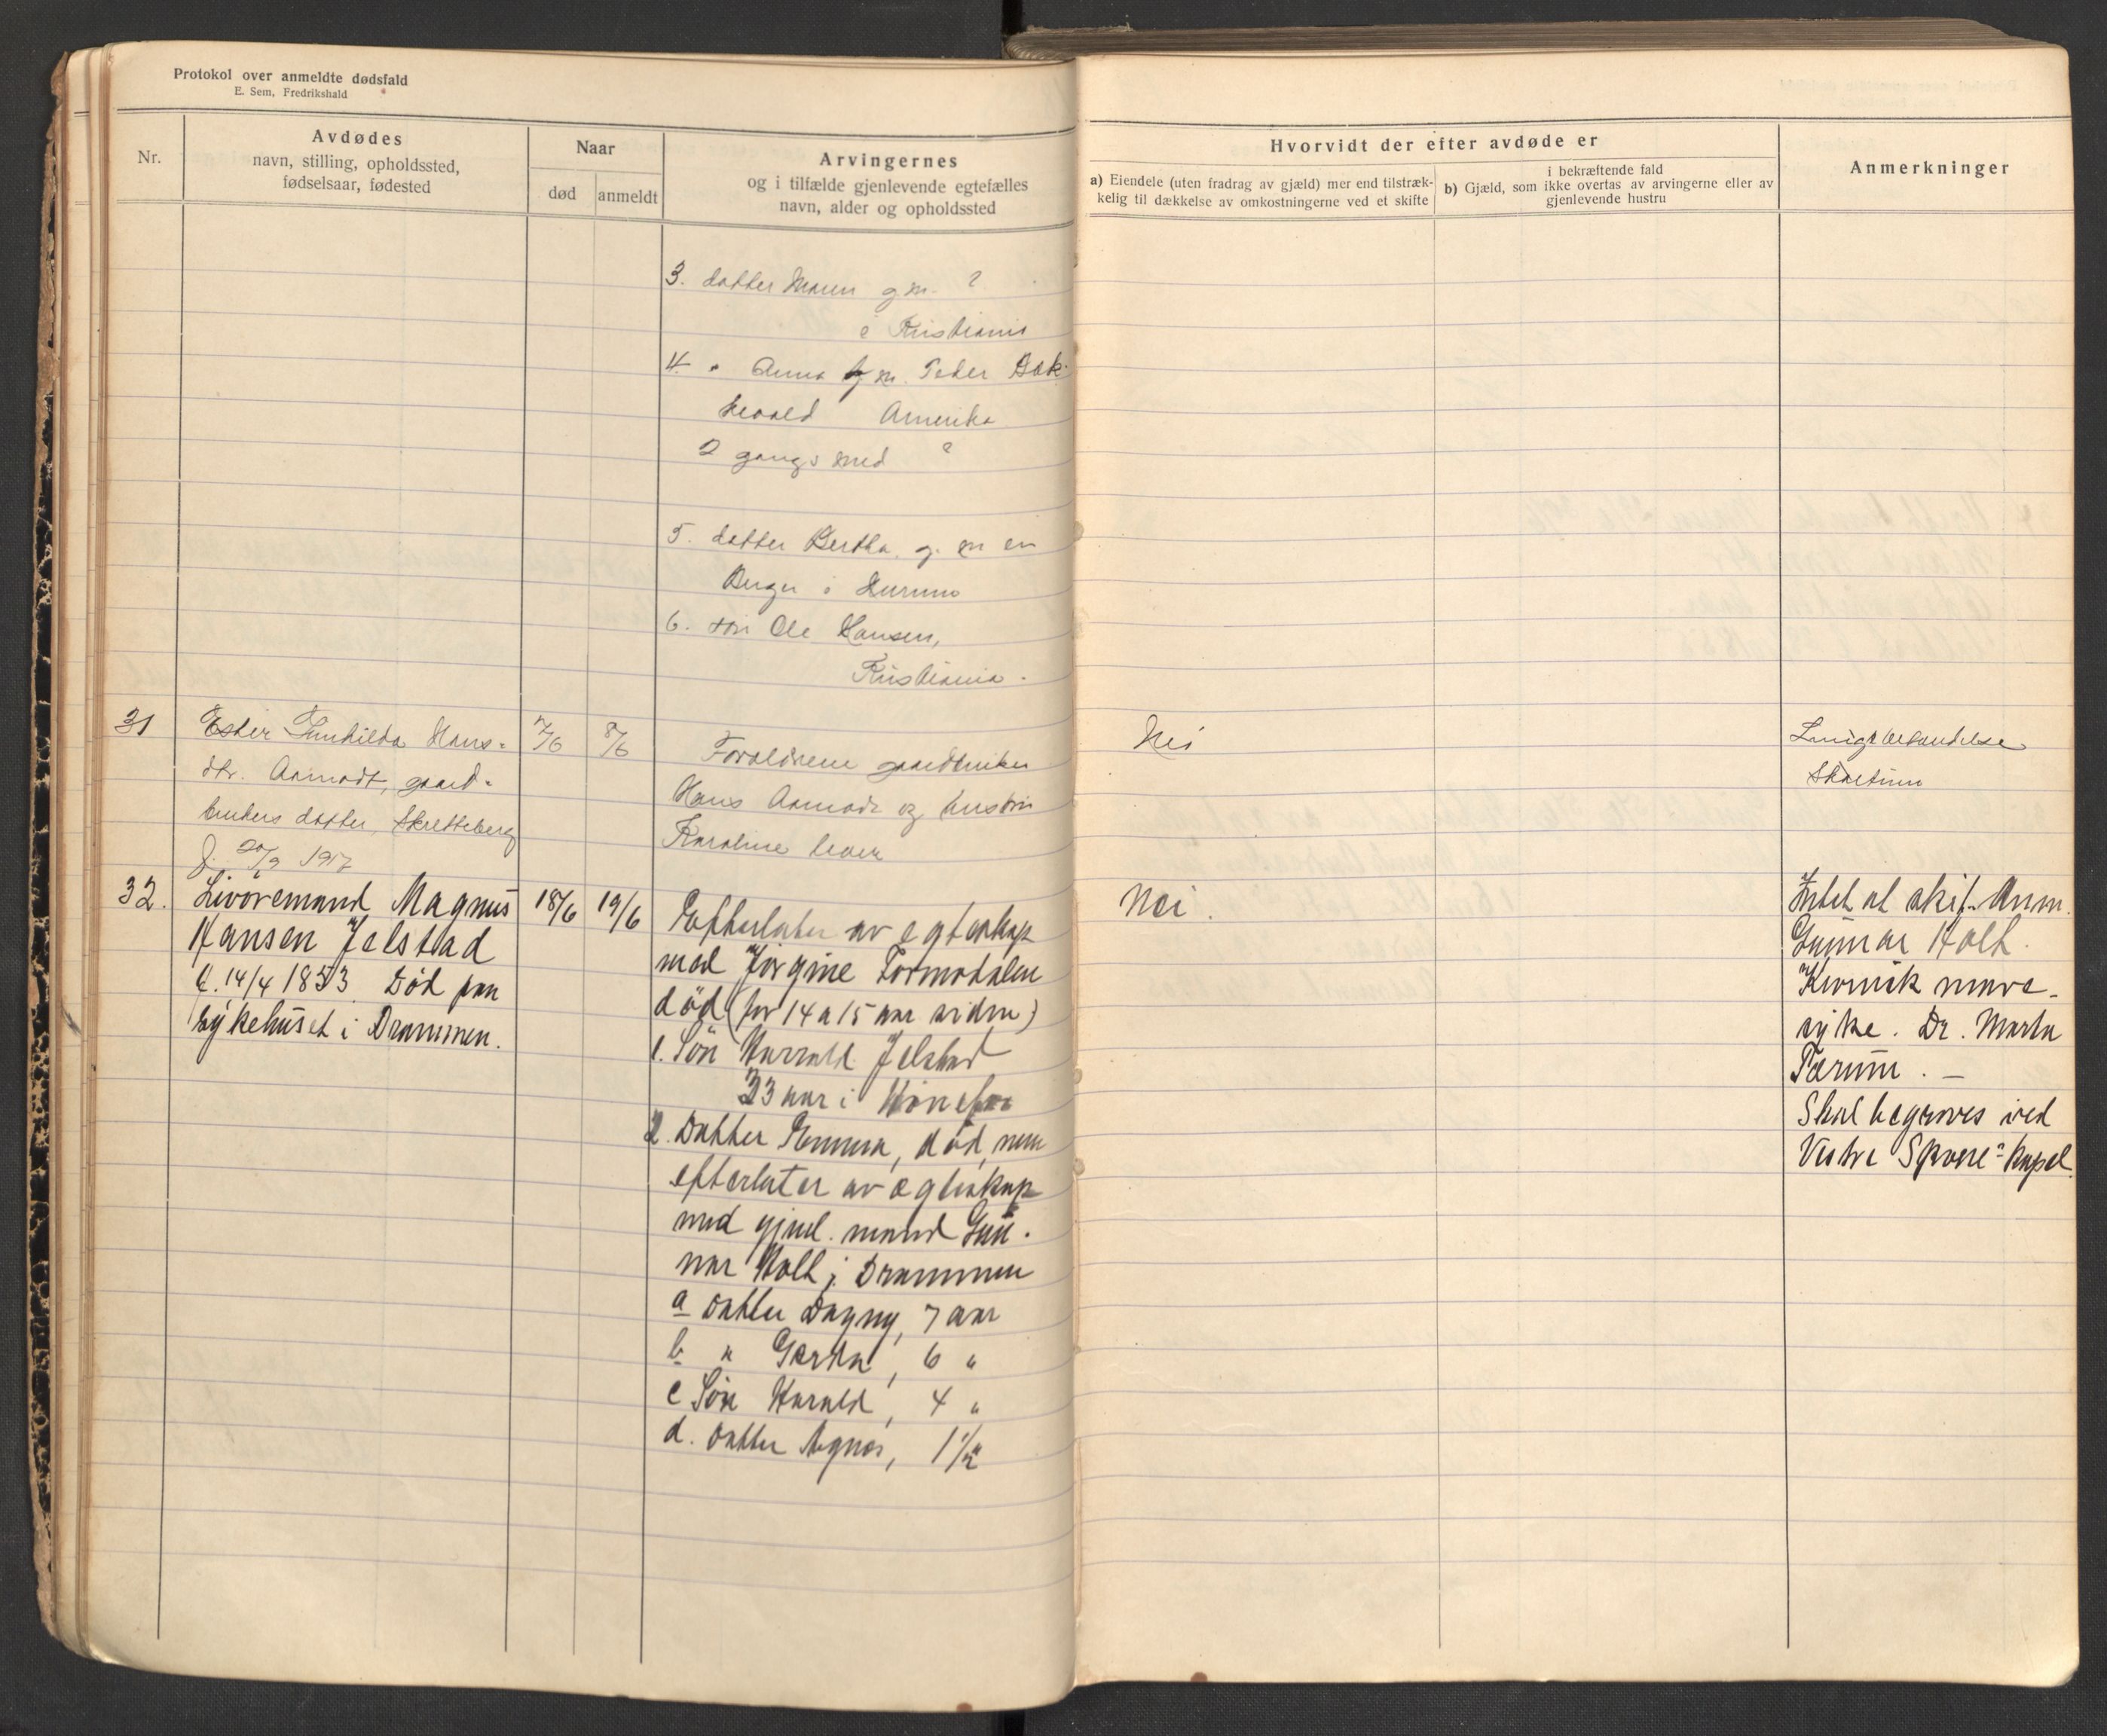 Protokol over anmeldte dødsfald
E. Sem, Fredrikshald
Nr.
Avdødes
navn, stilling, opholdssted,
fødselsaar, fødested
Naar
død
anmeldt
Arvingernes
og i tilfælde gjenlevende egtefælles
navn, alder og opholdssted
Hvorvidt der efter avdøde er
a) Eiendele (uten fradrag av gjæld) mer end tilstræk-
kelig til dækkelse av omkostningerne ved et skifte
i bekræftende fald
b) Gjæld, som ikke overtas av arvingerne eller av
gjenlevende hustru
Anmerkninger
3. datter Maren g m. ?
i Kristiania
4. " Anna g m. Peter Bak-
Amerika
2 gangs med ?
5. datter Bertha, g. m en
Berger i Hurum
6. søn Ole Hansen,
Kristiania.
31
Ester Hans-
dtr. Aamodt, gaard-
brukers datter, Skretteberg
f. 20/9 1917
7/6
8/6
Forældrene gaardbruker
Hans Aamodt og hustru
Karoline lever
Nei
32.
Livøremand Magnus
Hansen Jelstad
f. 14/4 1853. Død paa
Sykehuset i Drammen.
18/6
19/6
Efterlater av egteskap
med Jørgine Tormodalen
død (for 14 a 15 aar siden)
1. Søn Harald Jelstad
33 aar i Hønefos
2. Datter Emma, død, som
efterlater av egteskap
med gjenl. mand Gun-
nar Holt i Drammen
a datter Dagny, 7 aar
b " Gerda, 6 "
c Søn Harald, 4 "
d. datter Agnes, 1 1/2 "
Nei.
Intet at skif. Anm.
Gunnar Holt.
Kronisk mave-
syke. Dr. Marta
Færum. —
Skal begraves ved
Vestre Spone kapel.